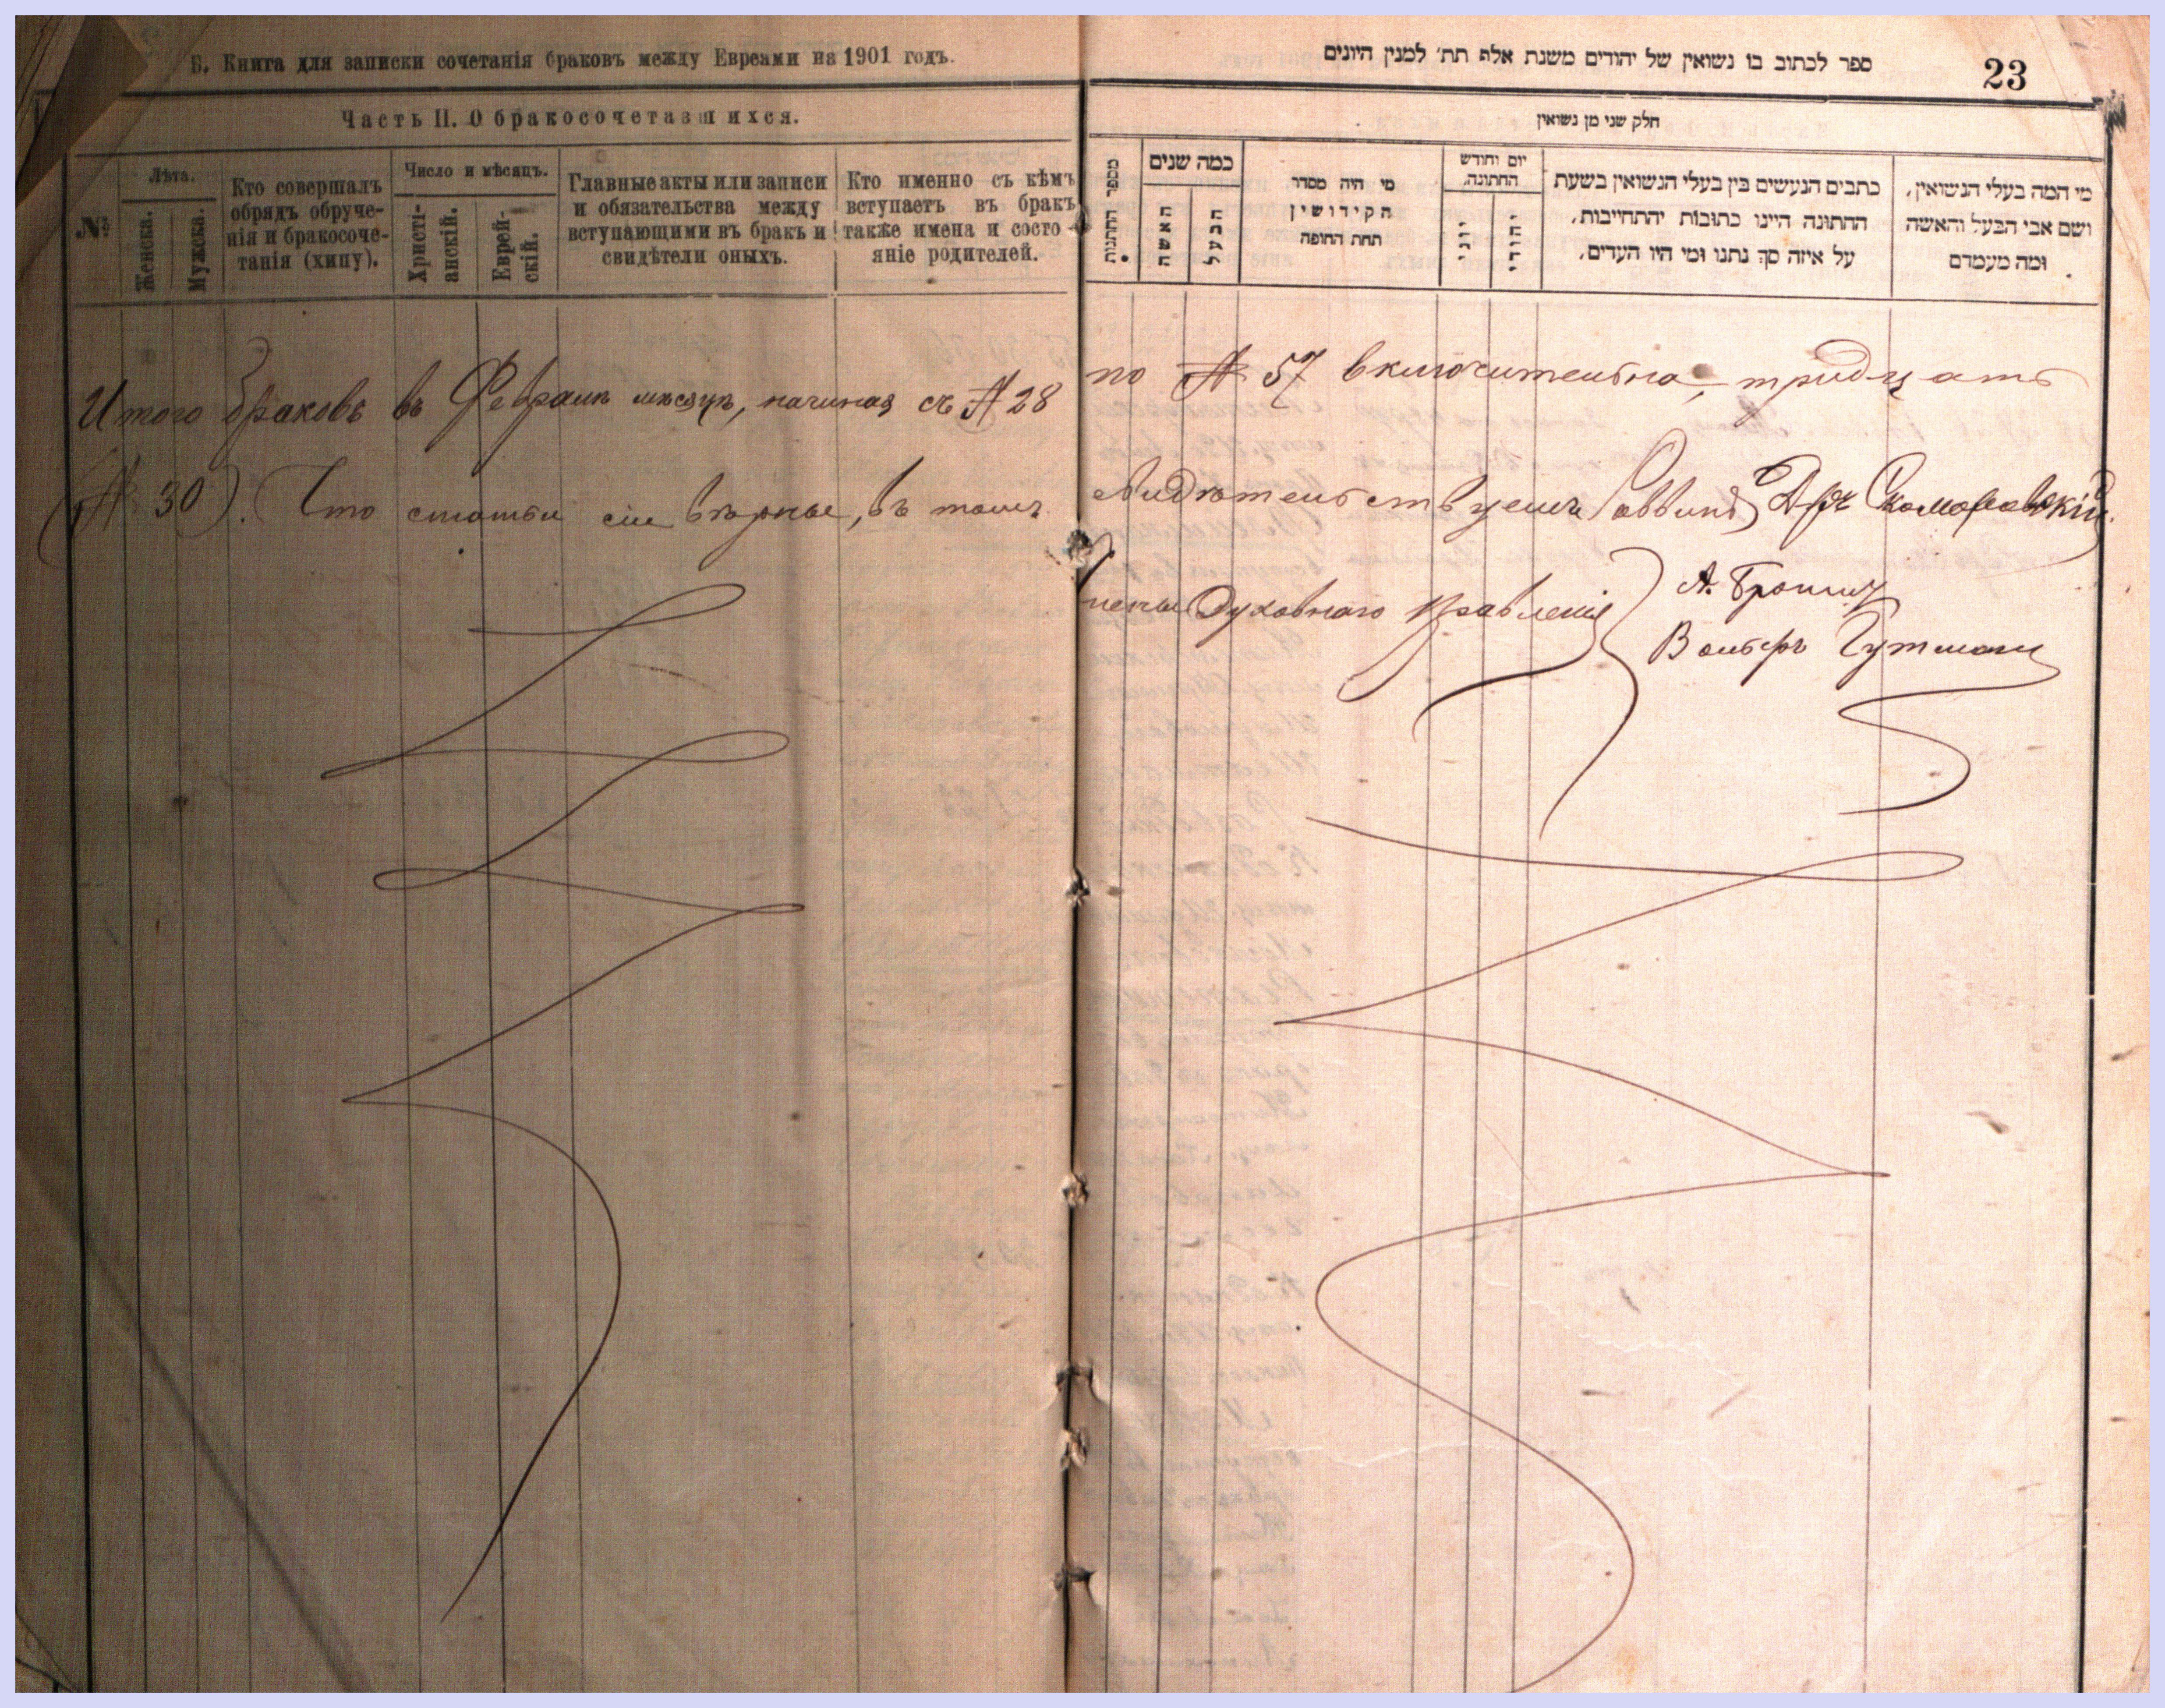 Б. Книга для записки сочетанія браковъ между Евреами на 1901 годъ.
Часть II. О бракосочетавшихся.
№
Лѣта.
Женска.
Мужска.
Кто совершалъ
обрядъ обруче-
нія и бракосоче-
танія (хипу).
Число и мѣсяцъ.
Христі-
анскій.
Еврей-
скій.
Главные акты или записи
и обязательства между
вступающими въ бракъ и
свидѣтели оныхъ.
Кто именно съ кѣмъ
вступаетъ въ бракъ
также имена и состо-
яніе родителей.
ספר לכתוב בו נשואין של יהודים משנת אלף תת׳ למנין היונים
23
חלק שני מן נשואין
מספר החתנות
כמה שנים
האשה
הבעל
מי היה מסדר
הקידושין
תחת החופה
יום וחודש
החתונה.
יוני
יהודי
כתבים הנעשים בין בעלי הנשואין בשעת
החתונה היינו כתובות יהתחייבות,
על איזה סך נתנו ומי היו העדים,
מי המה בעלי הנשואין,
ושם אבי הבעל והאשה
ומה מעמדם
Итого браковъ въ Февралѣ мѣсяцѣ, начиная съ № 28 по № 57 включительно, тридцать
(№ 30). Что статьи сіи вѣрны, въ томъ свидѣтельствуемъ Раввинъ Д-ръ Скоморовскій
Члены Духовнаго Правленія
Вольфъ Гутманъ